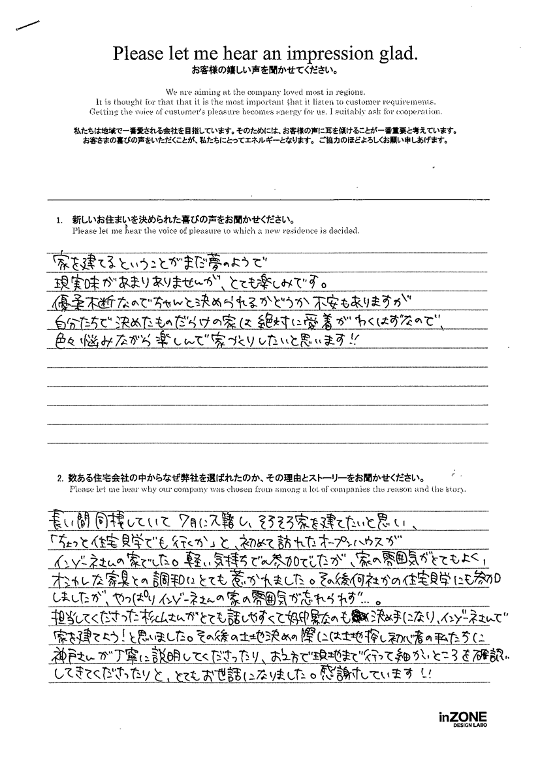 Please let me hear an impression glad.
お客様の嬉しい声を聞かせてください。
We are aiming at the company loved most in regions.
It is thought for that that it is the most important that it listen to customer requirements.
Getting the voice of customer's pleasure becomes energy for us. I suitably ask for cooperation.
私たちは地域で一番愛される会社を目指しています。そのためには、お客様の声に耳を傾けることが一番重要と考えています。
お客さまの喜びの声をいただくことが、私たちにとってエネルギーとなります。 ご協力のほどよろしくお願い申しあげます。
1. 新しいお住まいを決められた喜びの声をお聞かせください。
Please let me hear the voice of pleasure to which a new residence is decided.
家を建てるということがまだ夢のようで
現実味があまりありませんが、とても楽しみです。
優柔不断なのでちゃんと決められるかどうか不安もありますが
自分たちで決めたものだらけの家は絶対に愛着がわくはずなので、
色々悩みながら楽しんで家づくりしたいと思います!!
2. 数ある住宅会社の中からなぜ弊社を選ばれたのか、その理由とストーリーをお聞かせください。
Please let me hear why our company was chosen from among a lot of companies the reason and the story.
長い間同棲していて 7月に入籍し、そろそろ家を建てたいと思い、
「ちょっと住宅見学でも行くか」と、初めて訪れたオープンハウスが
インゾーネさんの家でした。軽い気持ちでの参加でしたが、家の雰囲気がとてもよく、
オシャレな家具との調和にとても惹かれました。その後何社かの住宅見学にも参加
しましたが、やっぱりインゾーネさんの家の雰囲気が忘れられず…。
担当してくださった杉山さんがとても話しやすくて好印象なのも決め手になり、インゾーネさんで
家を建てよう!と思いました。その後の土地決めの際には土地探し初心者の私たちに
神戸さんが丁寧に説明してくださったり、お2方で現地まで行って細かいところを確認
してきてくださったりと、とてもお世話になりました。感謝しています!!
inZONE
DESIGN LABO